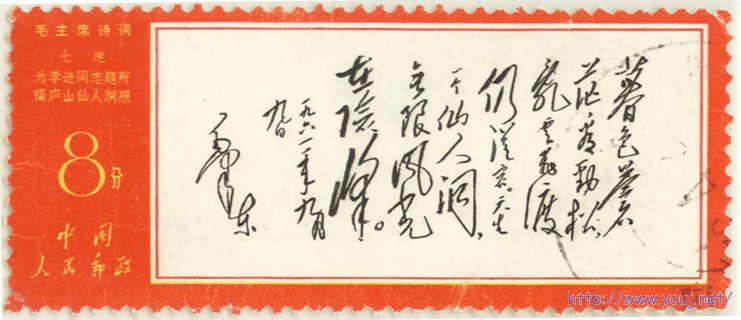 毛主席诗词
七绝
为李进同志题所
摄庐山仙人洞照
8分
中国
人民邮政
暮色蒼
茫看勁松,
亂雲飛渡
仍從容。天生
一个仙人洞,
無限風光
在險峰。
一九六一年九月
九日
毛澤東
http://www.youjj.net/